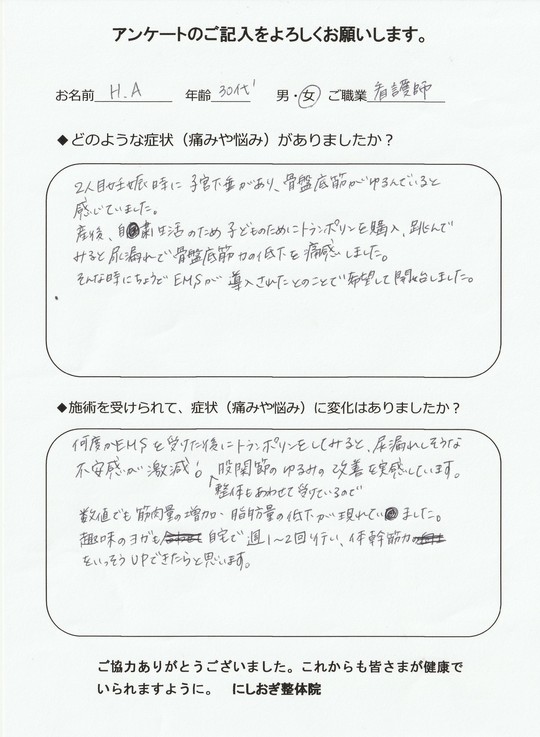 アンケートのご記入をよろしくお願いします。
お名前 H.A 年齢 30代 男・女 ご職業 看護師
◆どのような症状（痛みや悩み）がありましたか？
2人目妊娠時に子宮下垂があり、骨盤底筋がゆるんでいると
感じていました。
産後、自粛生活のため子どものためにトランポリンを購入、跳んで
みると尿漏れで骨盤底筋力の低下を痛感しました。
そんな時にちょうどEMSが導入されたとのことで希望して開始しました。
◆施術を受けられて、症状（痛みや悩み）に変化はありましたか？
何度かEMSを受けた後にトランポリンをしてみると、尿漏れしそうな
不安感が激減！。股関節のゆるみの改善を実感しています。
整体もあわせて受けているので
数値でも筋肉量の増加・脂肪量の低下が現れていました。
趣味のヨガも自宅で週1〜2回行い、体幹筋力
をいっそうUPできたらと思います。
ご協力ありがとうございました。これからも皆さまが健康で
いられますように。 にしおぎ整体院